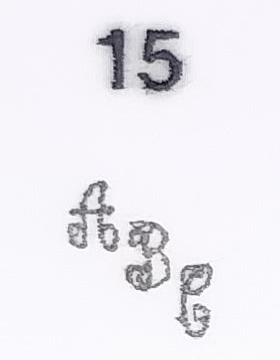 15
ABC